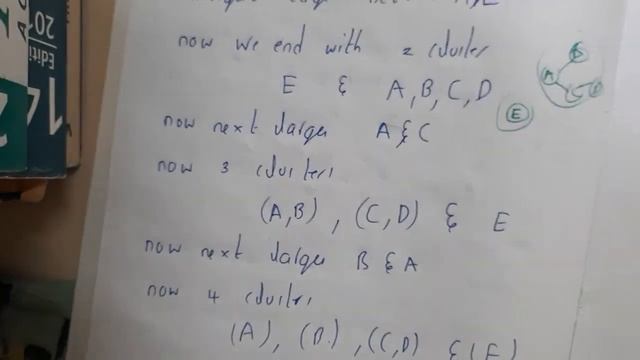 now we end with 2 cluster
E & A, B, C, D
now next larger A & C
now 3 clusters
(A,B) , (C,D) & E
now next larger B & A
now 4 clusters
(A), (B), (C,D) & (E)
B
A
C D
E
Editi
20
14
2